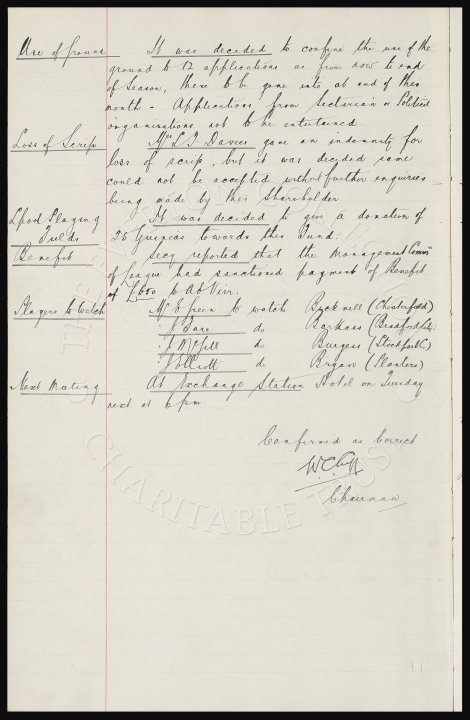 Use of ground It was decided to confine the use of the
ground to 12 applications as from now to end
of Season, these to be gone into at end of this
month - Applications from Sectarian or Political
organisations not to be entertained.
Loss of Scrip Mrs L J Davies gave an indemnity for
loss of scrip, but it was decided same
could not be accepted without further enquiries
being made by this Shareholder
Lpool Playing It was decided to give a donation of
Fields 25 Guineas towards this Fund.
Benefit Secy reported that the Management Comm
of League had sanctioned payment of Benefit
of £650 to A d Virr.
Players to Watch Mr E Green to watch Bycknell (Chesterfield)
" J Sare do Barkass (Bradford City)
" J McGill do Burgess (Stockport C)
" J Elliott do Bryan (Planters)
Next Meeting At Exchange Station Hotel on Tuesday
next at 6 pm
Confirmed as Correct
W C Cuff
Chairman
CHARITABLE